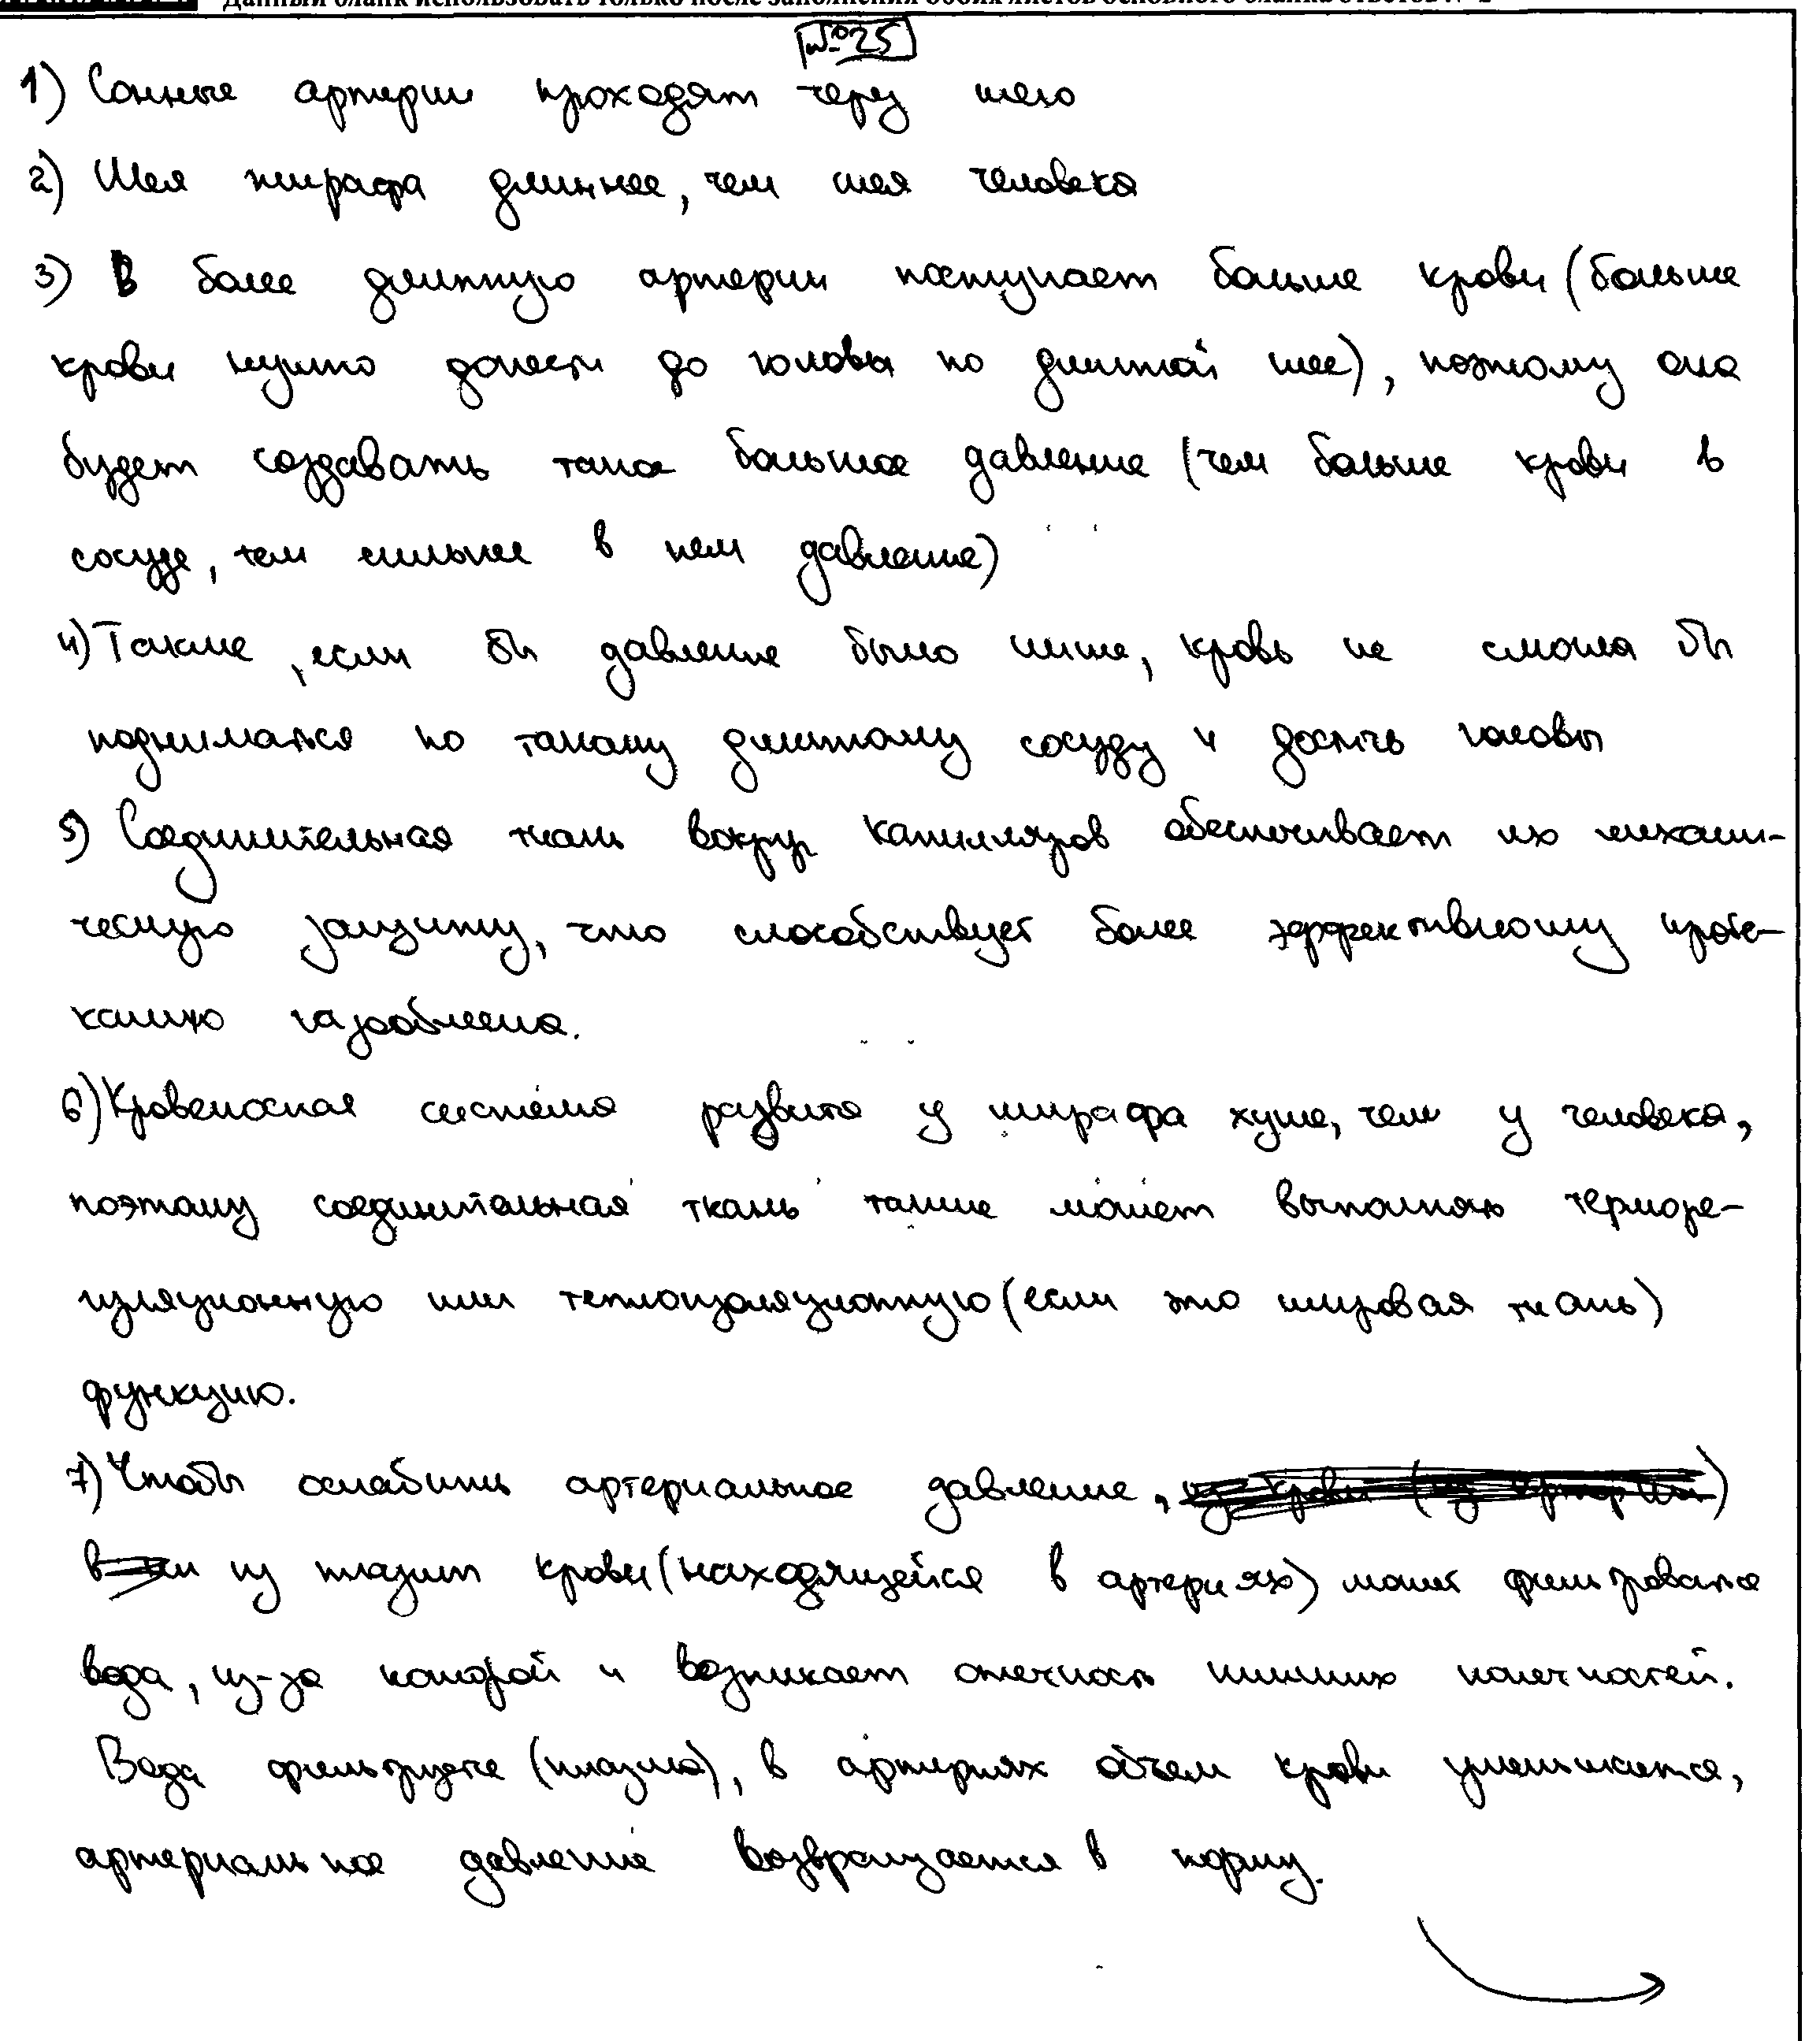 Данный бланк использовать только после заполнения обоих листов основного бланка ответов № 2
№25
1) Сонные артерии проходят через шею
2) Шея жирафа длиннее, чем шея человека
3) В более длинную артерии поступает больше крови (больше
крови нужно донести до головы по длинной шее), поэтому она
будет создавать такое большое давление (чем больше крови в
сосуде, тем сильнее в нем давление)
4) Также, если бы давление было ниже, кровь не смогла бы
подниматься по такому длинному сосуду и достичь головы
5) Соединительная ткань вокруг капилляров обеспечивает их механи-
ческую защиту, что способствует более эффективному проте-
канию газообмена.
6) Кровеносная система развита у жирафа хуже, чем у человека,
поэтому соединительная ткань также может выполнять терморе-
гуляционную или теплоизоляционную (если это жировая ткань)
функцию.
7) Чтобы ослабить артериальное давление,
из плазмы крови (находящейся в артериях) может фильтроваться
вода, из-за которой и возникает отечность нижних конечностей.
Вода фильтруется (плазма), в артериях объем крови уменьшается,
артериальное давление возвращается в норму.